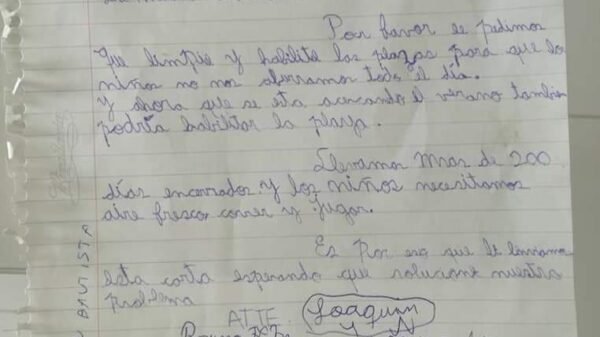 Por favor le pedimos
que limpie y habilite las plazas para que los
niños no nos aburramos todo el día.
Y ahora que se eta acercando el verano tambien
podría habilitar la playa.
Llevamos mas de 200
días encerrados y los niños necesitamos
aire fresco, correr y jugar.
Es por eso que le enviamos
esta carta esperando que solucione nuestro
problema
ATTE. Joaquin
BAUTISTA